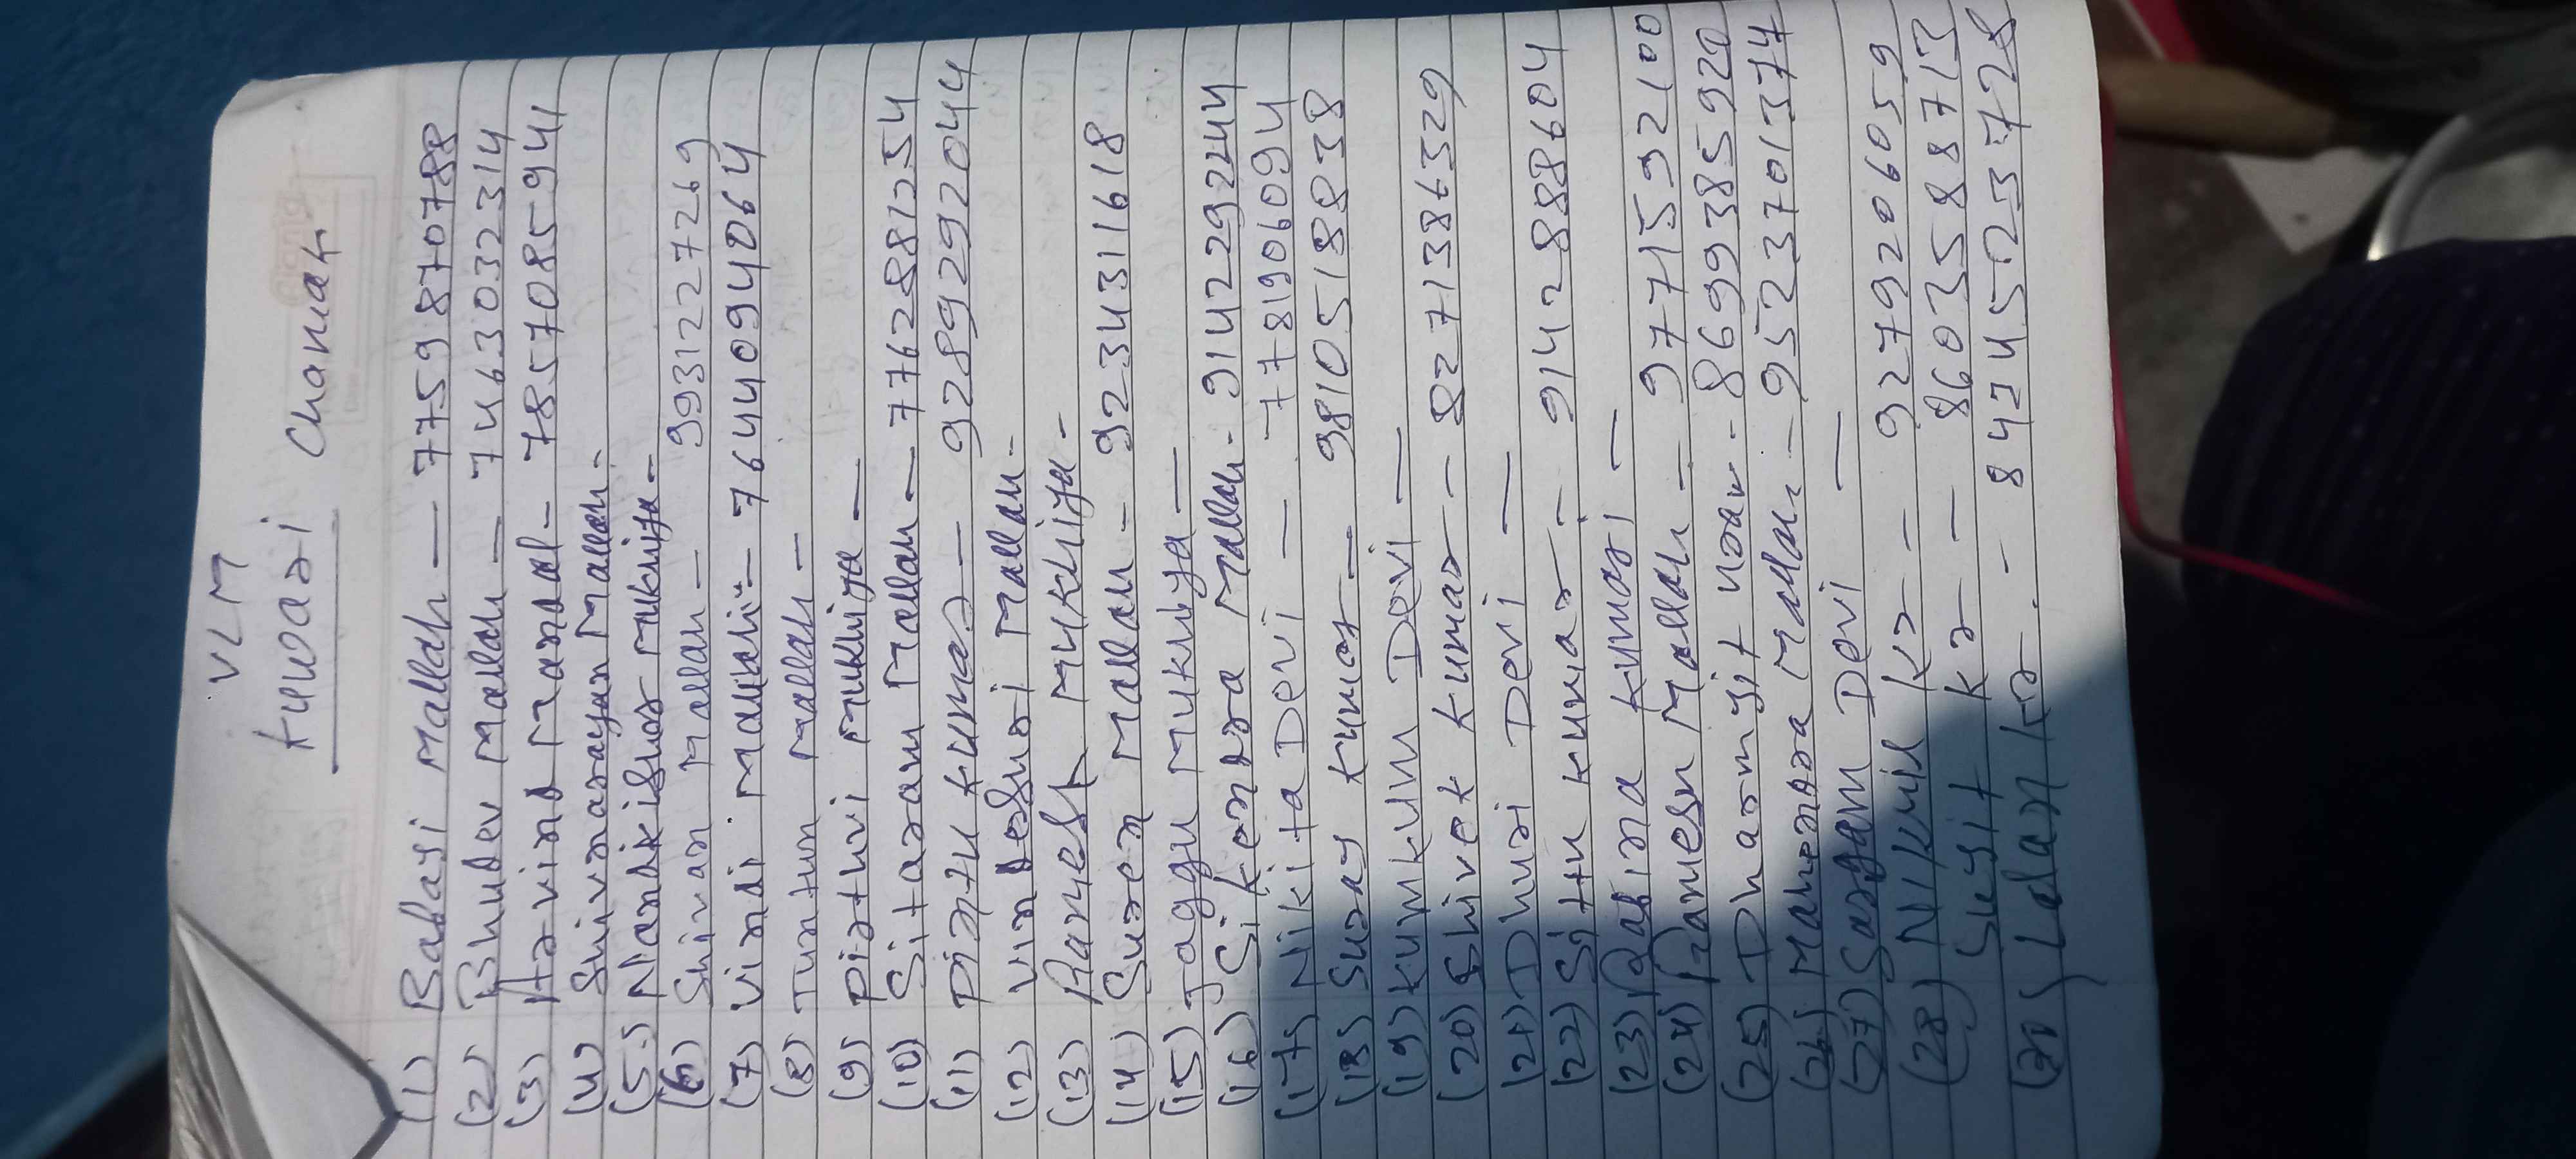 VLM
kuwari Chanak
(1) Babaji Mallah — 7759870788
(2) Bhudev Mallah — 7463032314
(3) Arvind Mandal - 7857085941
(4) Shivnarayan Mallah -
(5) Nandkishor Mukhiya -
(6) Shivan Mallah - 9931227269
(7) Vindi Mallah - 7644094064
(8) Tuntun Mallah -
(9) Pirthvi Mukhiya —
(10) Sitaram Mallah — 7762881254
(11) Pintu kumar — 9289292044
(12) Vindeshri Mallah -
(13) Ramesh Mukhiya -
(14) Suren Mallah - 9234311618
(15) Jaggu Mukhiya —
(16) Sikendra Mallah - 9142292244
(17) Nikita Devi — 7781906094
(18) Suraj kumar — 9810518838
(19) Kumkum Devi —
(20) Shivek kumar - 8271386329
(21) Dhuri Devi —
(22) Sittu kumar - 9142888604
(23) Rabina kumari —
(24) Ramesh Mallah — 9771592100
(25) Dharmjit - 8699385920
(26) Mahendra Mallah - 9523701374
(27) Sargam Devi —
(28) Nikhil kr — 9279206059
Sujit kr — 8603588713
kr. - 8474523728